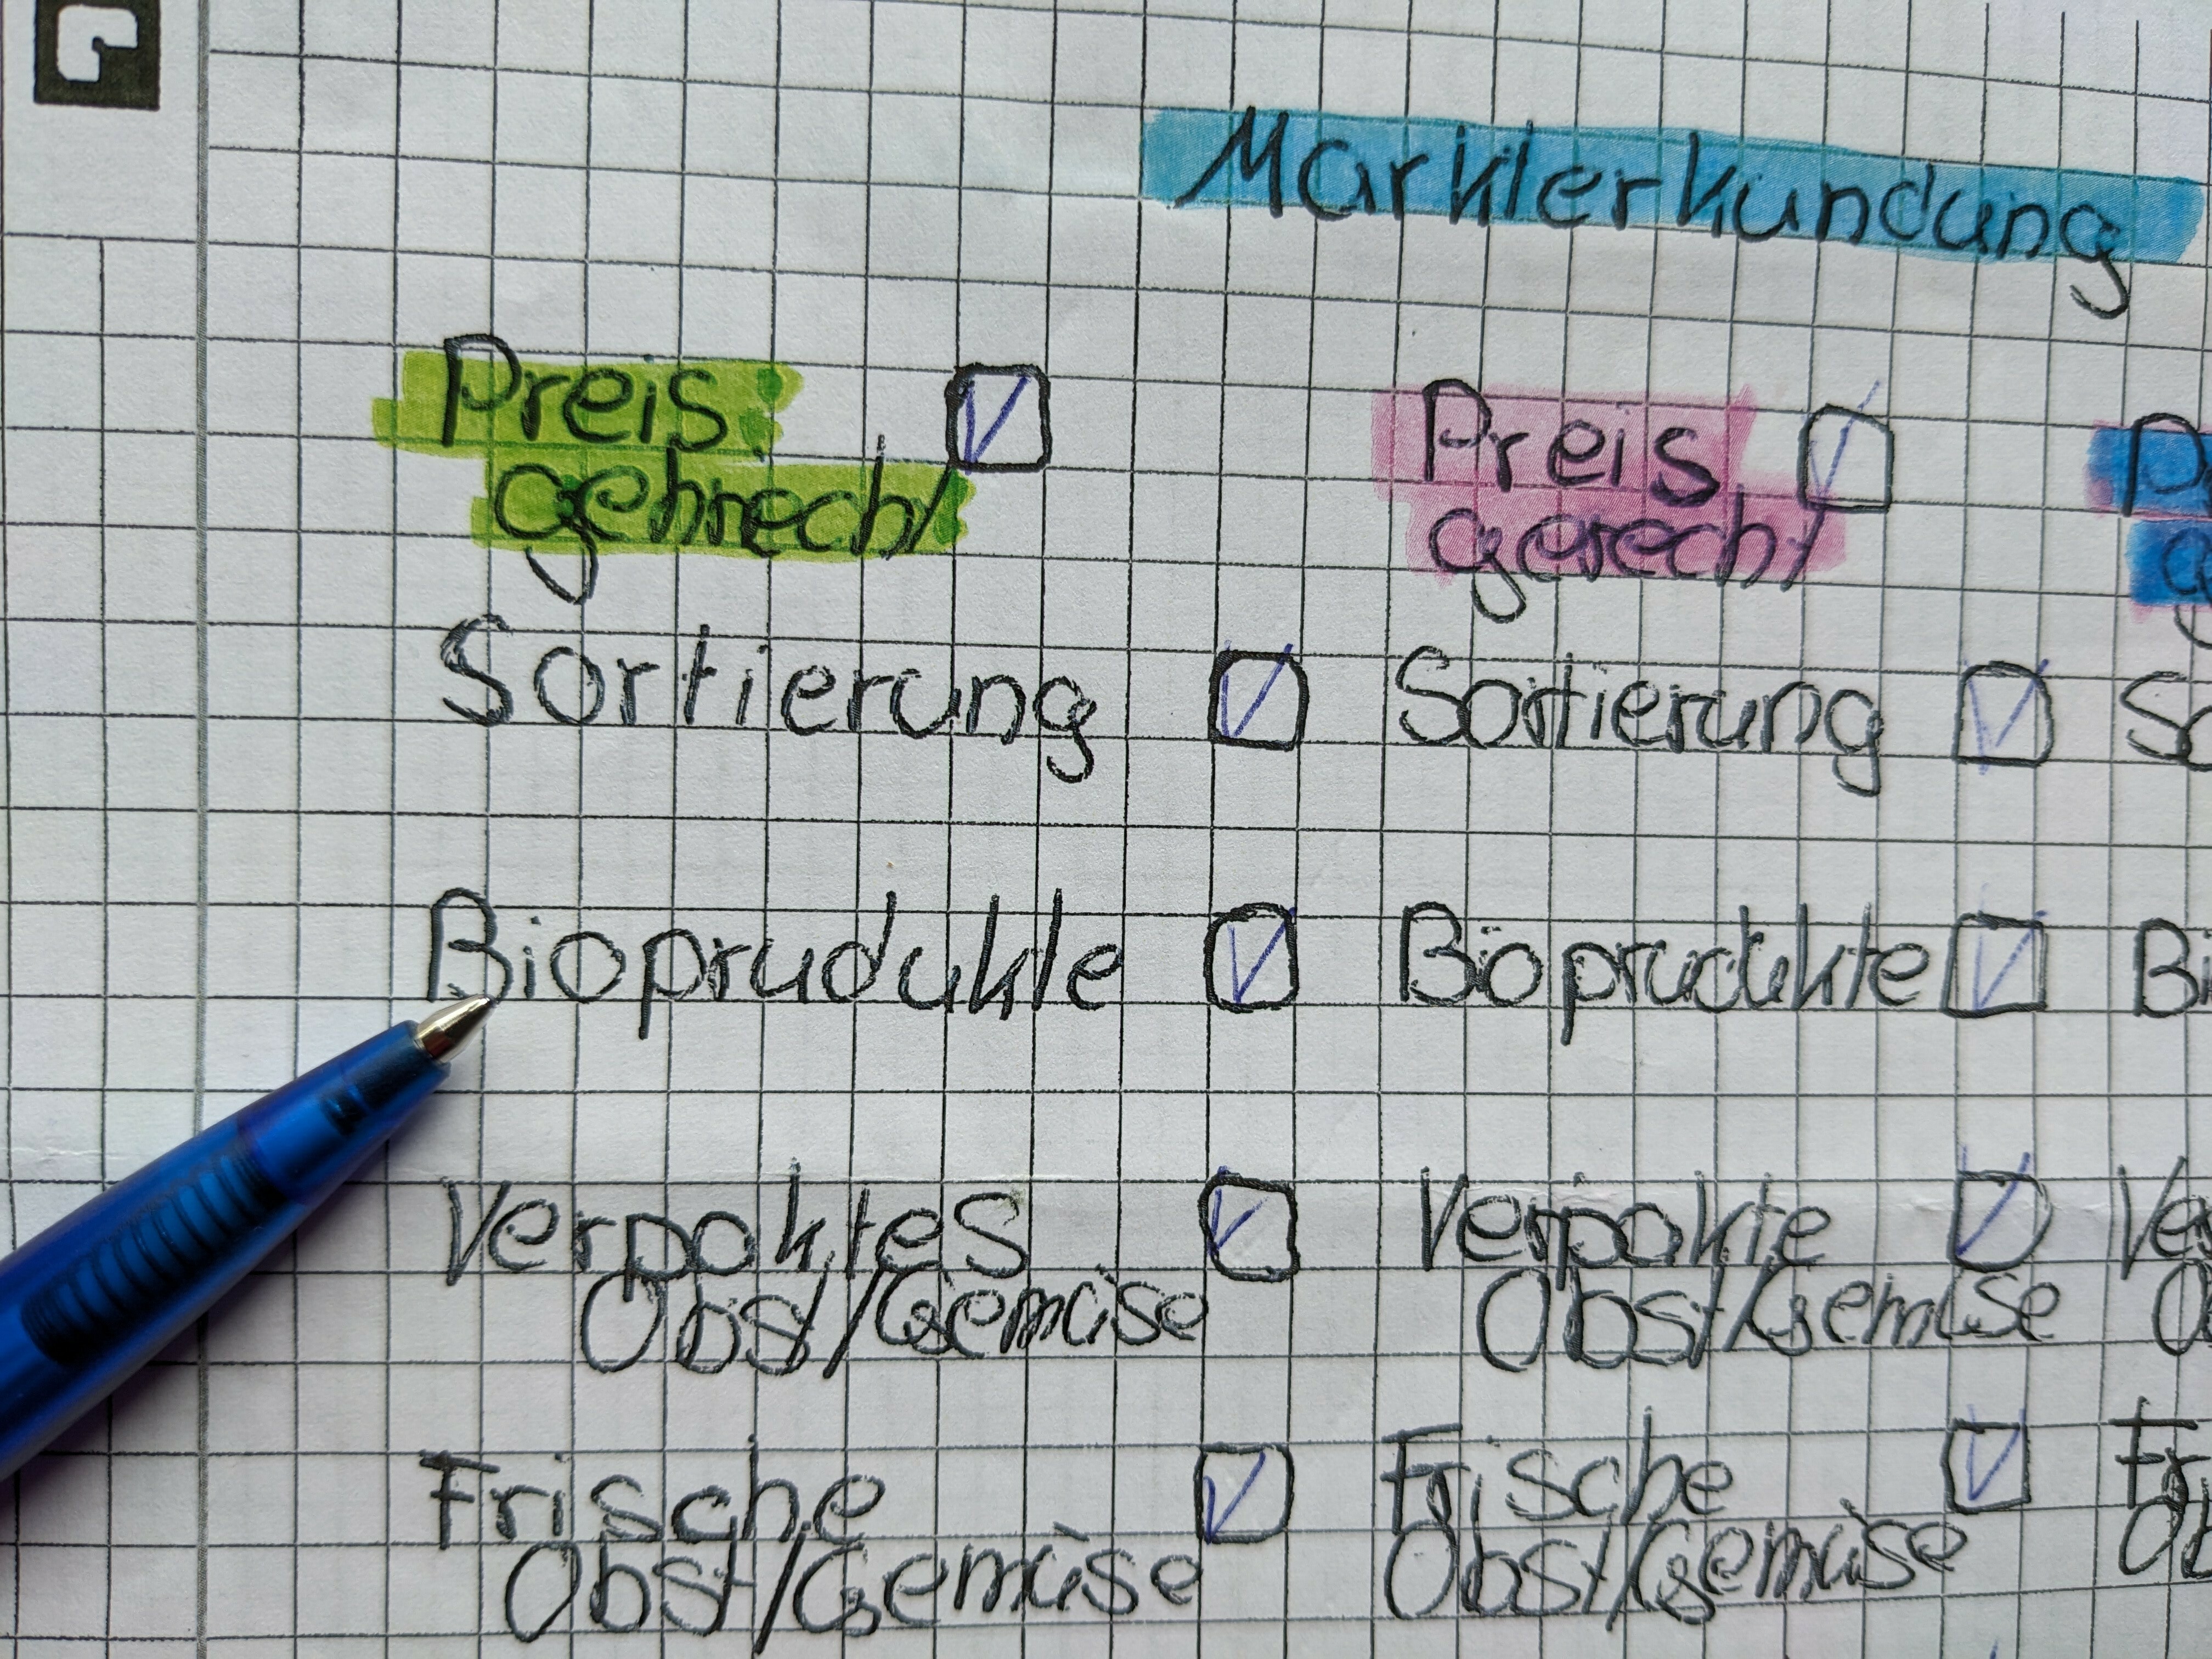 Markterkundung
Preis:
gehrecht
Sortierung
Bioprudukte
Verpaktes
Obst/Gemüse
Frische
Obst/Gemüse
Preis
gerecht
Sortierung
Bioprudukte
Verpakte
Obst/Gemüse
Frische
Obst/Gemüse